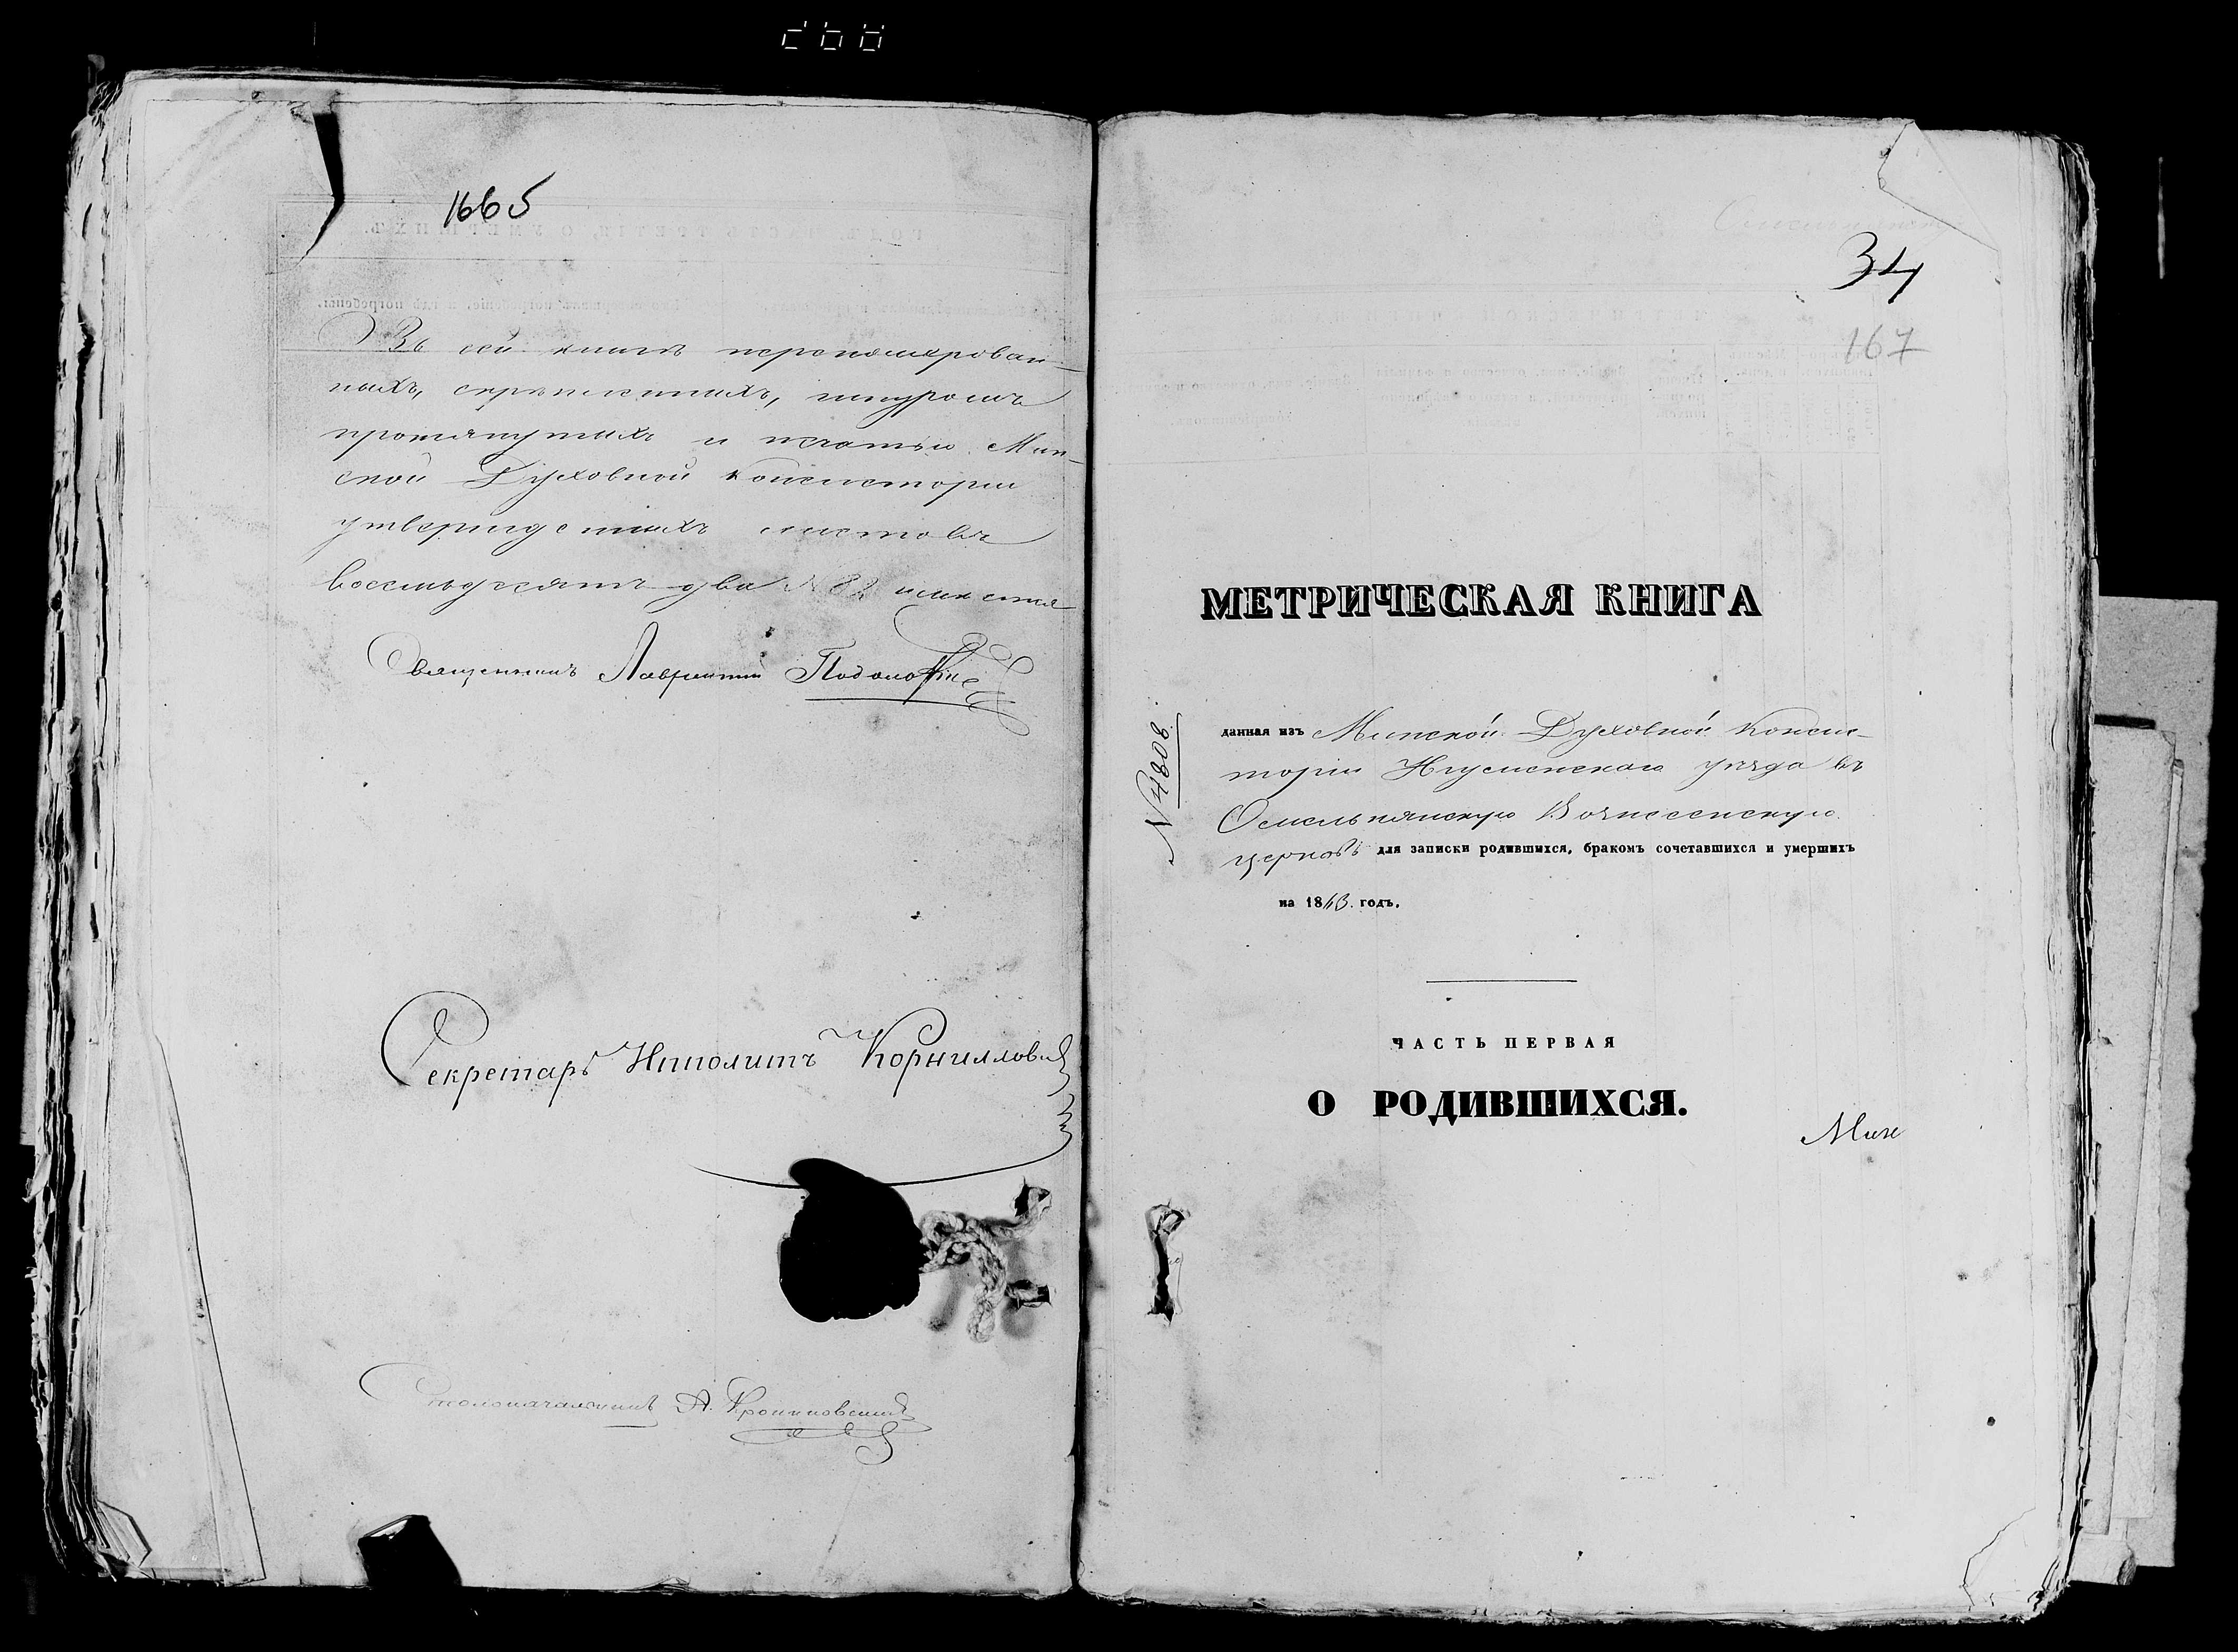 1665
Въ сей книгѣ перономерован-
ныхъ, скрѣпленныхъ, шнуромъ
протянутыхъ и печатью Мин-
ской Духовной Консисторіи
утвержденныхъ листовъ
восемьдесятъ два № 82
Священникъ Лаврентій
Секретарь Ипполитъ Корниллови
Столоначальникъ А.
34
167
МЕТРИЧЕСКАЯ КНИГА
№ 4808.
данная изъ Минской Духовной Консис-
торіи Игуменскаго уѣзда въ
Омельнянскую Вознесенскую
церковь для записки родившихся, бракомъ сочетавшихся и умершихъ
на 1843. годъ.
ЧАСТЬ ПЕРВАЯ
О РОДИВШИХСЯ.